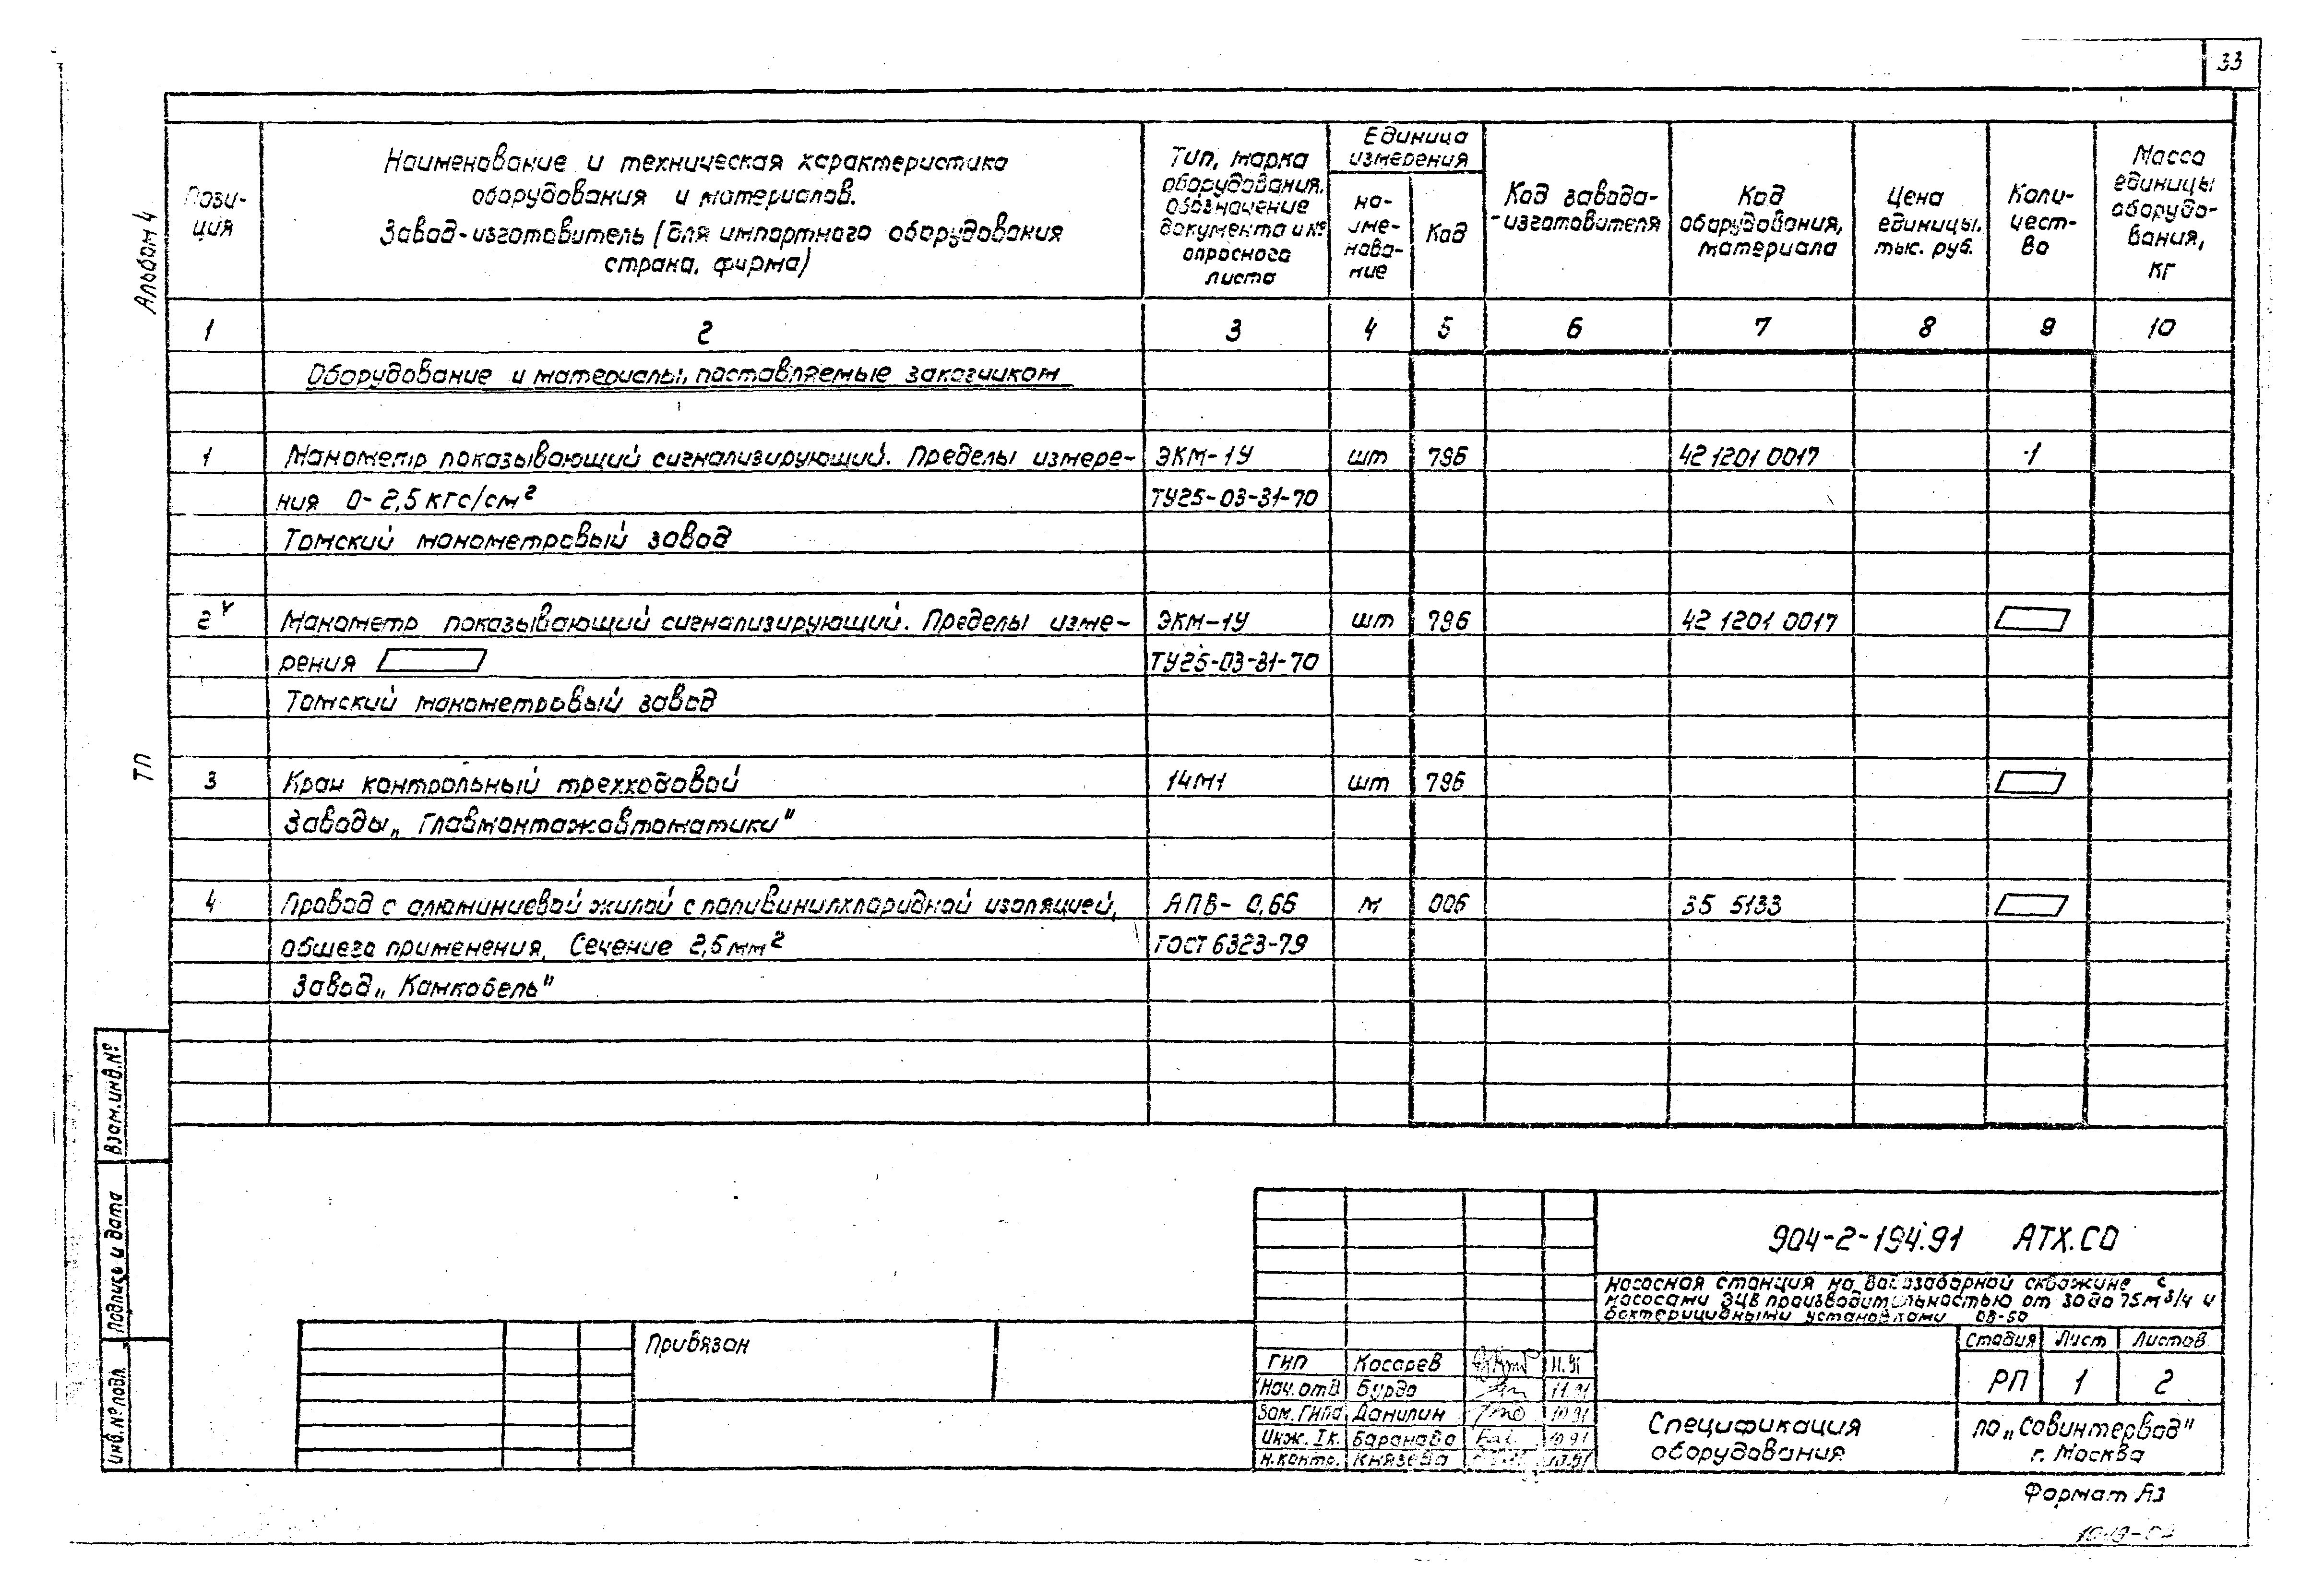 33
Альбом 4
ТП
Пози-
ция
Наименование и техническая характеристика
оборудования и материалов.
Завод-изготовитель (для импортного оборудования
страна, фирма)
Тип, марка
оборудования.
Обозначение
документа и №
опросного
листа
Единица
измерения
на-
име-
нова-
ние
Код
Код завода-
-изготовителя
Код
оборудования,
материала
Цена
единицы,
тыс. руб.
Коли-
чест-
во
Масса
единицы
оборудо-
вания,
кг
1 2 3 4 5 6 7 8 9 10
Оборудование и материалы, поставляемые заказчиком
1 Манометр показывающий сигнализирующий. Пределы измере- ЭКМ-1У шт 796 42 1201 0017 1
ния 0-2,5 кгс/см² ТУ25-03-31-70
Томский манометровый завод
2 Манометр показывающий сигнализирующий. Пределы изме- ЭКМ-1У шт 796 42 1201 0017
рения ТУ25-03-31-70
Томский манометровый завод
3 Кран контрольный трехходовой 14М1 шт 796
Заводы „Главмонтажавтоматики"
4 Провод с алюминиевой жилой с поливинилхлоридной изоляцией, АПВ- 0,66 м 006 35 5133
общего применения. Сечение 2,5 мм² ГОСТ 6323-79
Завод „Камкабель"
Взам.инв.№
Подпись и дата
Инв.№подл.
Привязан
904-2-194.91 АТХ.СО
Насосная станция на водозаборной скважине с
насосами ЭЦВ производительностью от 30 до 75 м³/ч и
бактерицидными установками ОВ-50
Стадия Лист Листов
РП 1 2
ГИП Косарев 11.91
Нач.отд. Бурдо 11.91
Зам.ГИПа Данилин 10.91
Инж. Iк. Баранова 10.91
Н.контр. Князева
Спецификация
оборудования
ПО „Совинтервод"
г. Москва
Формат А3